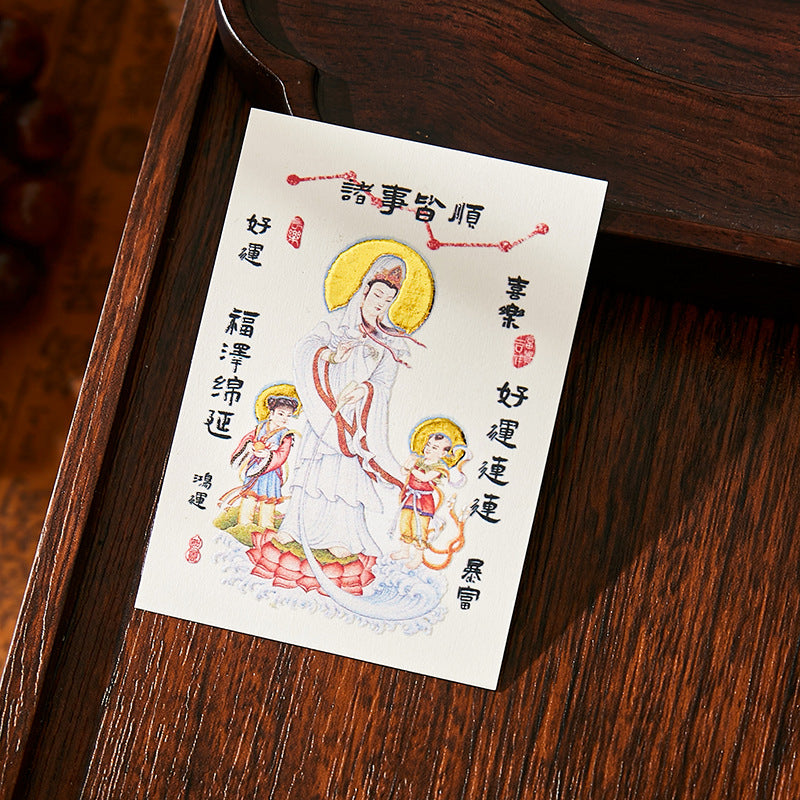 諸事皆順
好運
福澤綿延
鴻運
喜樂
好運連連
暴富